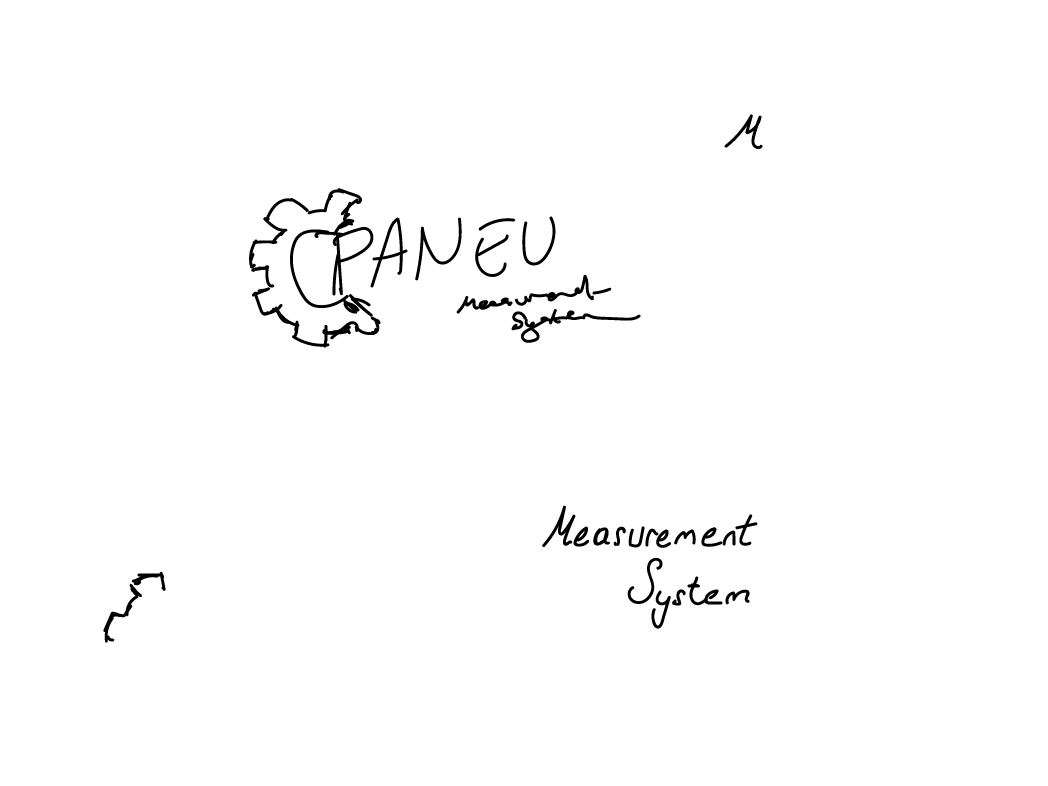 M
CPANEU
Measurement
System
Measurement
System